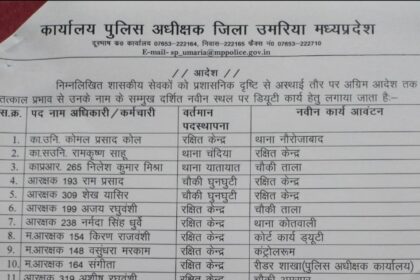 कार्यालय पुलिस अधीक्षक जिला उमरिया मध्यप्रदेश
दूरभाष क्र0 कार्यालय 07653-222164, निवास-222165 फैक्स नं0 07653-222710
E-mail- sp_umaria@mppolice.gov.in
// आदेश //
निम्नलिखित शासकीय सेवकों को प्रशासनिक दृष्टि से अस्थाई तौर पर अग्रिम आदेश तक
तत्काल प्रभाव से उनके नाम के सम्मुख दर्शित नवीन स्थल पर डियूटी कार्य हेतु लगाया जाता है:-
स.क्र. पद नाम अधिकारी/कर्मचारी वर्तमान पदस्थापना नवीन कार्य आवंटन
1. का.उनि. कोमल प्रसाद कोल रक्षित केन्द्र थाना नौरोजाबाद
2. का.सउनि. रामकृष्ण साहू थाना चंदिया रक्षित केन्द्र
3. काप्रआर. 265 निलेश कुमार मिश्रा थाना यातायात चौकी ताला
4. आरक्षक 193 राम प्रसाद चौकी घुनघुटी रक्षित केन्द्र
5. आरक्षक 309 शेख यासिर चौकी घुनघुटी रक्षित केन्द्र
6. आरक्षक 199 अजय रघुवंशी रक्षित केन्द्र चौकी ताला
7. आरक्षक 238 नर्मदा सिंह धुर्वे रक्षित केन्द्र थाना कोतवाली
8. म.आरक्षक 154 किरण राजवंशी रक्षित केन्द्र कोर्ट कार्य ड्यूटी
9. म.आरक्षक 148 वसुंधरा मरकाम रक्षित केन्द्र कंट्रोलरूम
10. म.आरक्षक 164 संगीता रक्षित केन्द्र रीडर शाखा(पुलिस अधीक्षक कार्यालय)
11. आरक्षक 319 आशीष रघुवंशी रक्षित केन्द्र